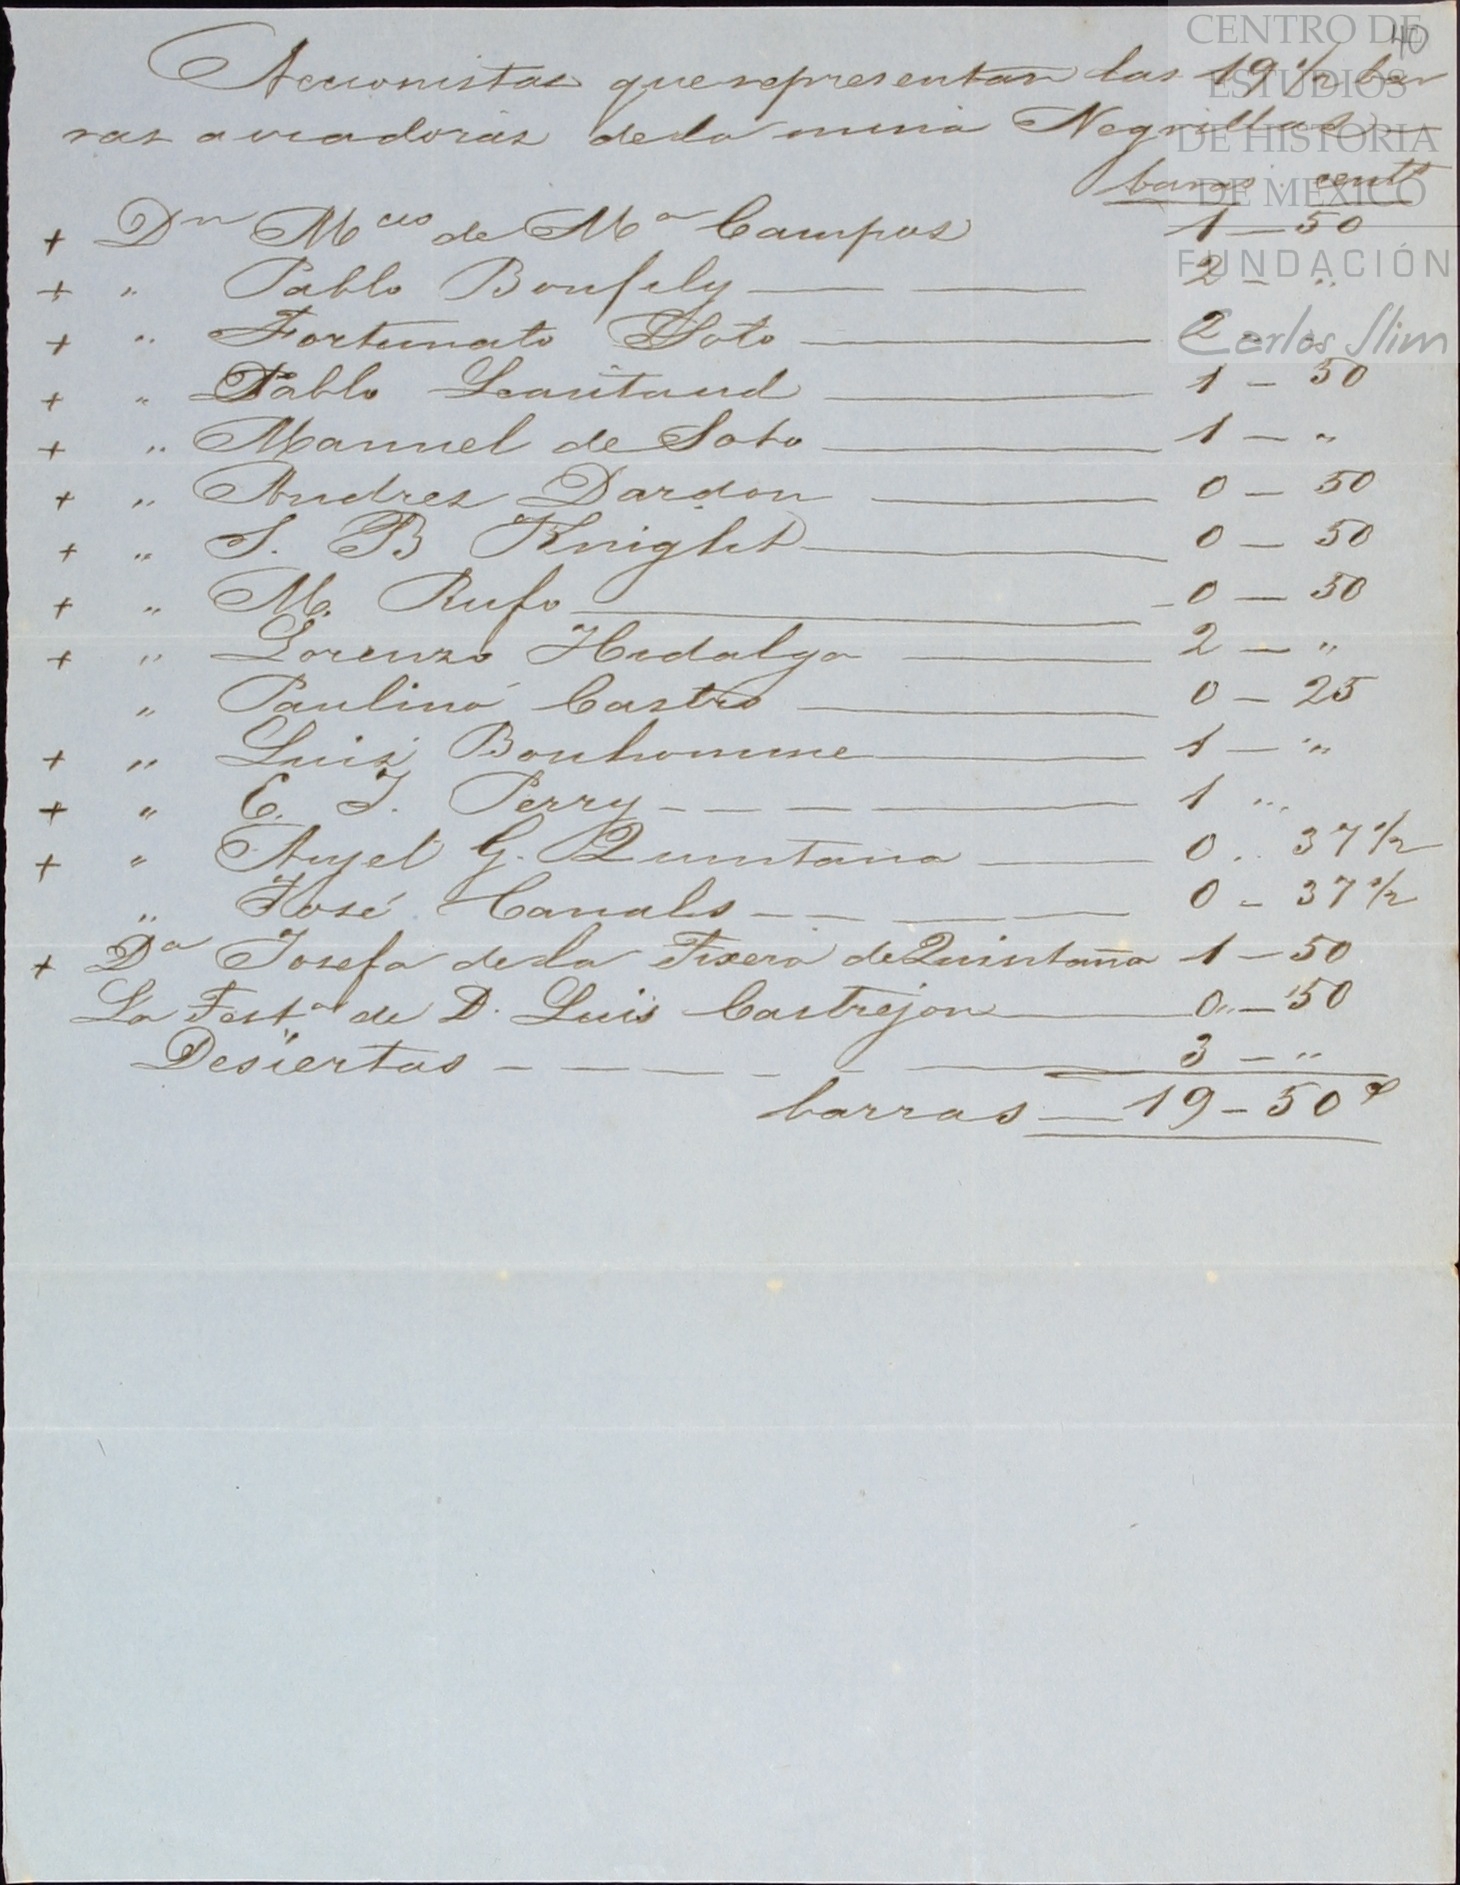 40
CENTRO DE
ESTUDIOS
DE HISTORIA
DE MEXICO
FUNDACIÓN
Carlos Slim
Accionistas que representan las 19 1/2 bar
ras aviadoras de la mina Negrillas
barras cents
+ Dn M cio de Ma Campos 1 — 50
+ " Pablo Bonfily 2 — "
+ " Fortunato Soto 2 — "
+ " Pablo Leautaud 1 — 50
+ " Manuel de Soto 1 — "
+ " Andres Dardon 0 — 50
+ " S. B Knight 0 — 50
+ " M. Rufo 0 — 50
+ " Lorenzo Hidalgo 2 — "
" Paulino Castro 0 — 25
+ " Luis Bonhomme 1 — "
+ " E. J. Perry 1 "
+ " Anjel G. Quintana 0 .. 37 1/2
" José Canals 0 - 37 1/2
+ Da Josefa de la Fixera de Quintana 1 — 50
La Testa de D. Luis Castrejon 0 " — 50
Desiertas 3 — "
barras 19 - 50